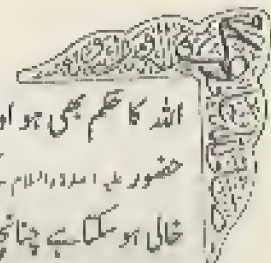 اللہ کا حکم بھی ہو اور
حضور علیہ الصلوٰۃ والسلام
خالی ہو سکتا ہے چنانچہ